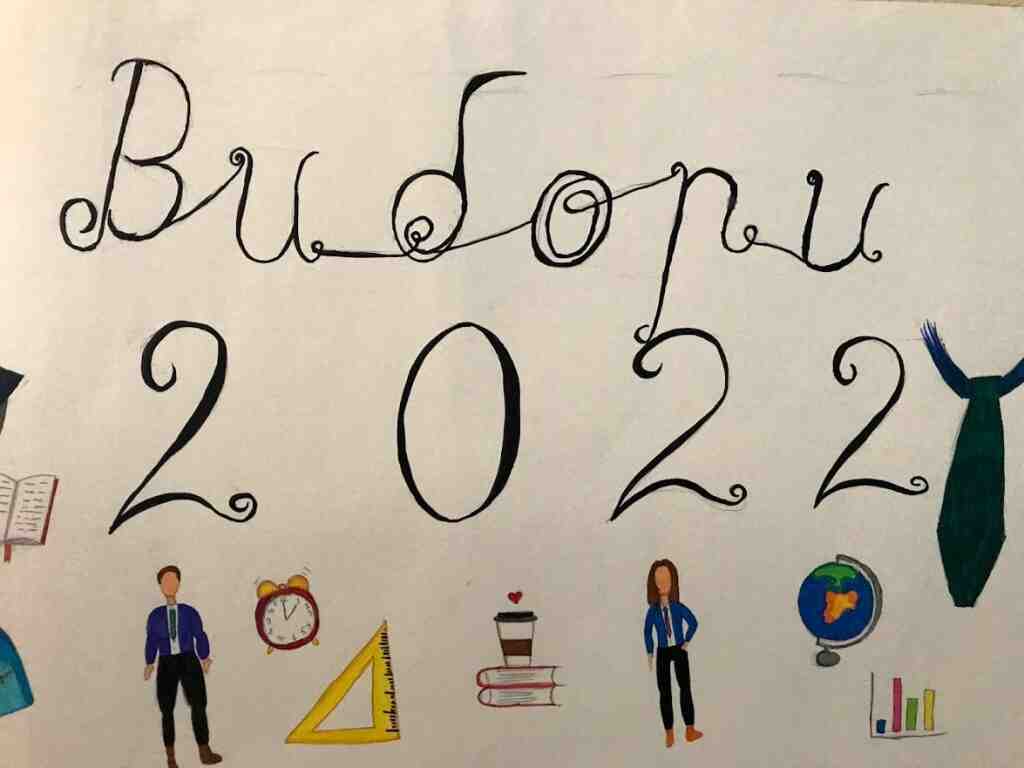 Вибори
2022